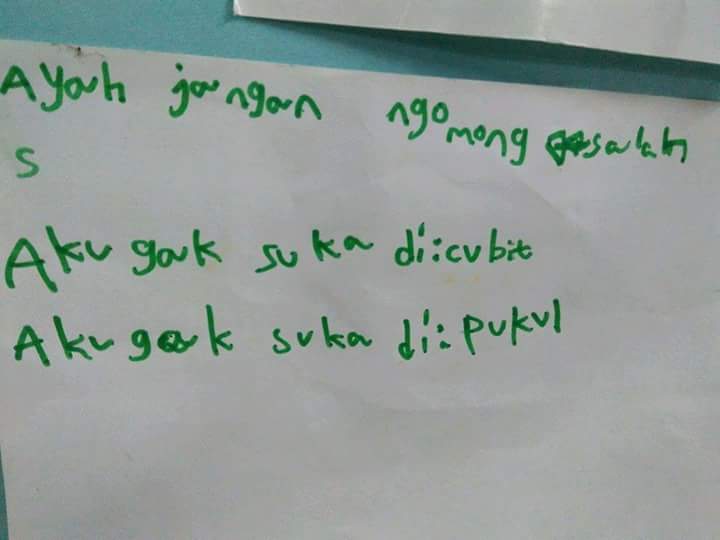 Ayah jangan ngomong salah
S
Aku gak suka di:cubit
Aku gak suka di:pukul